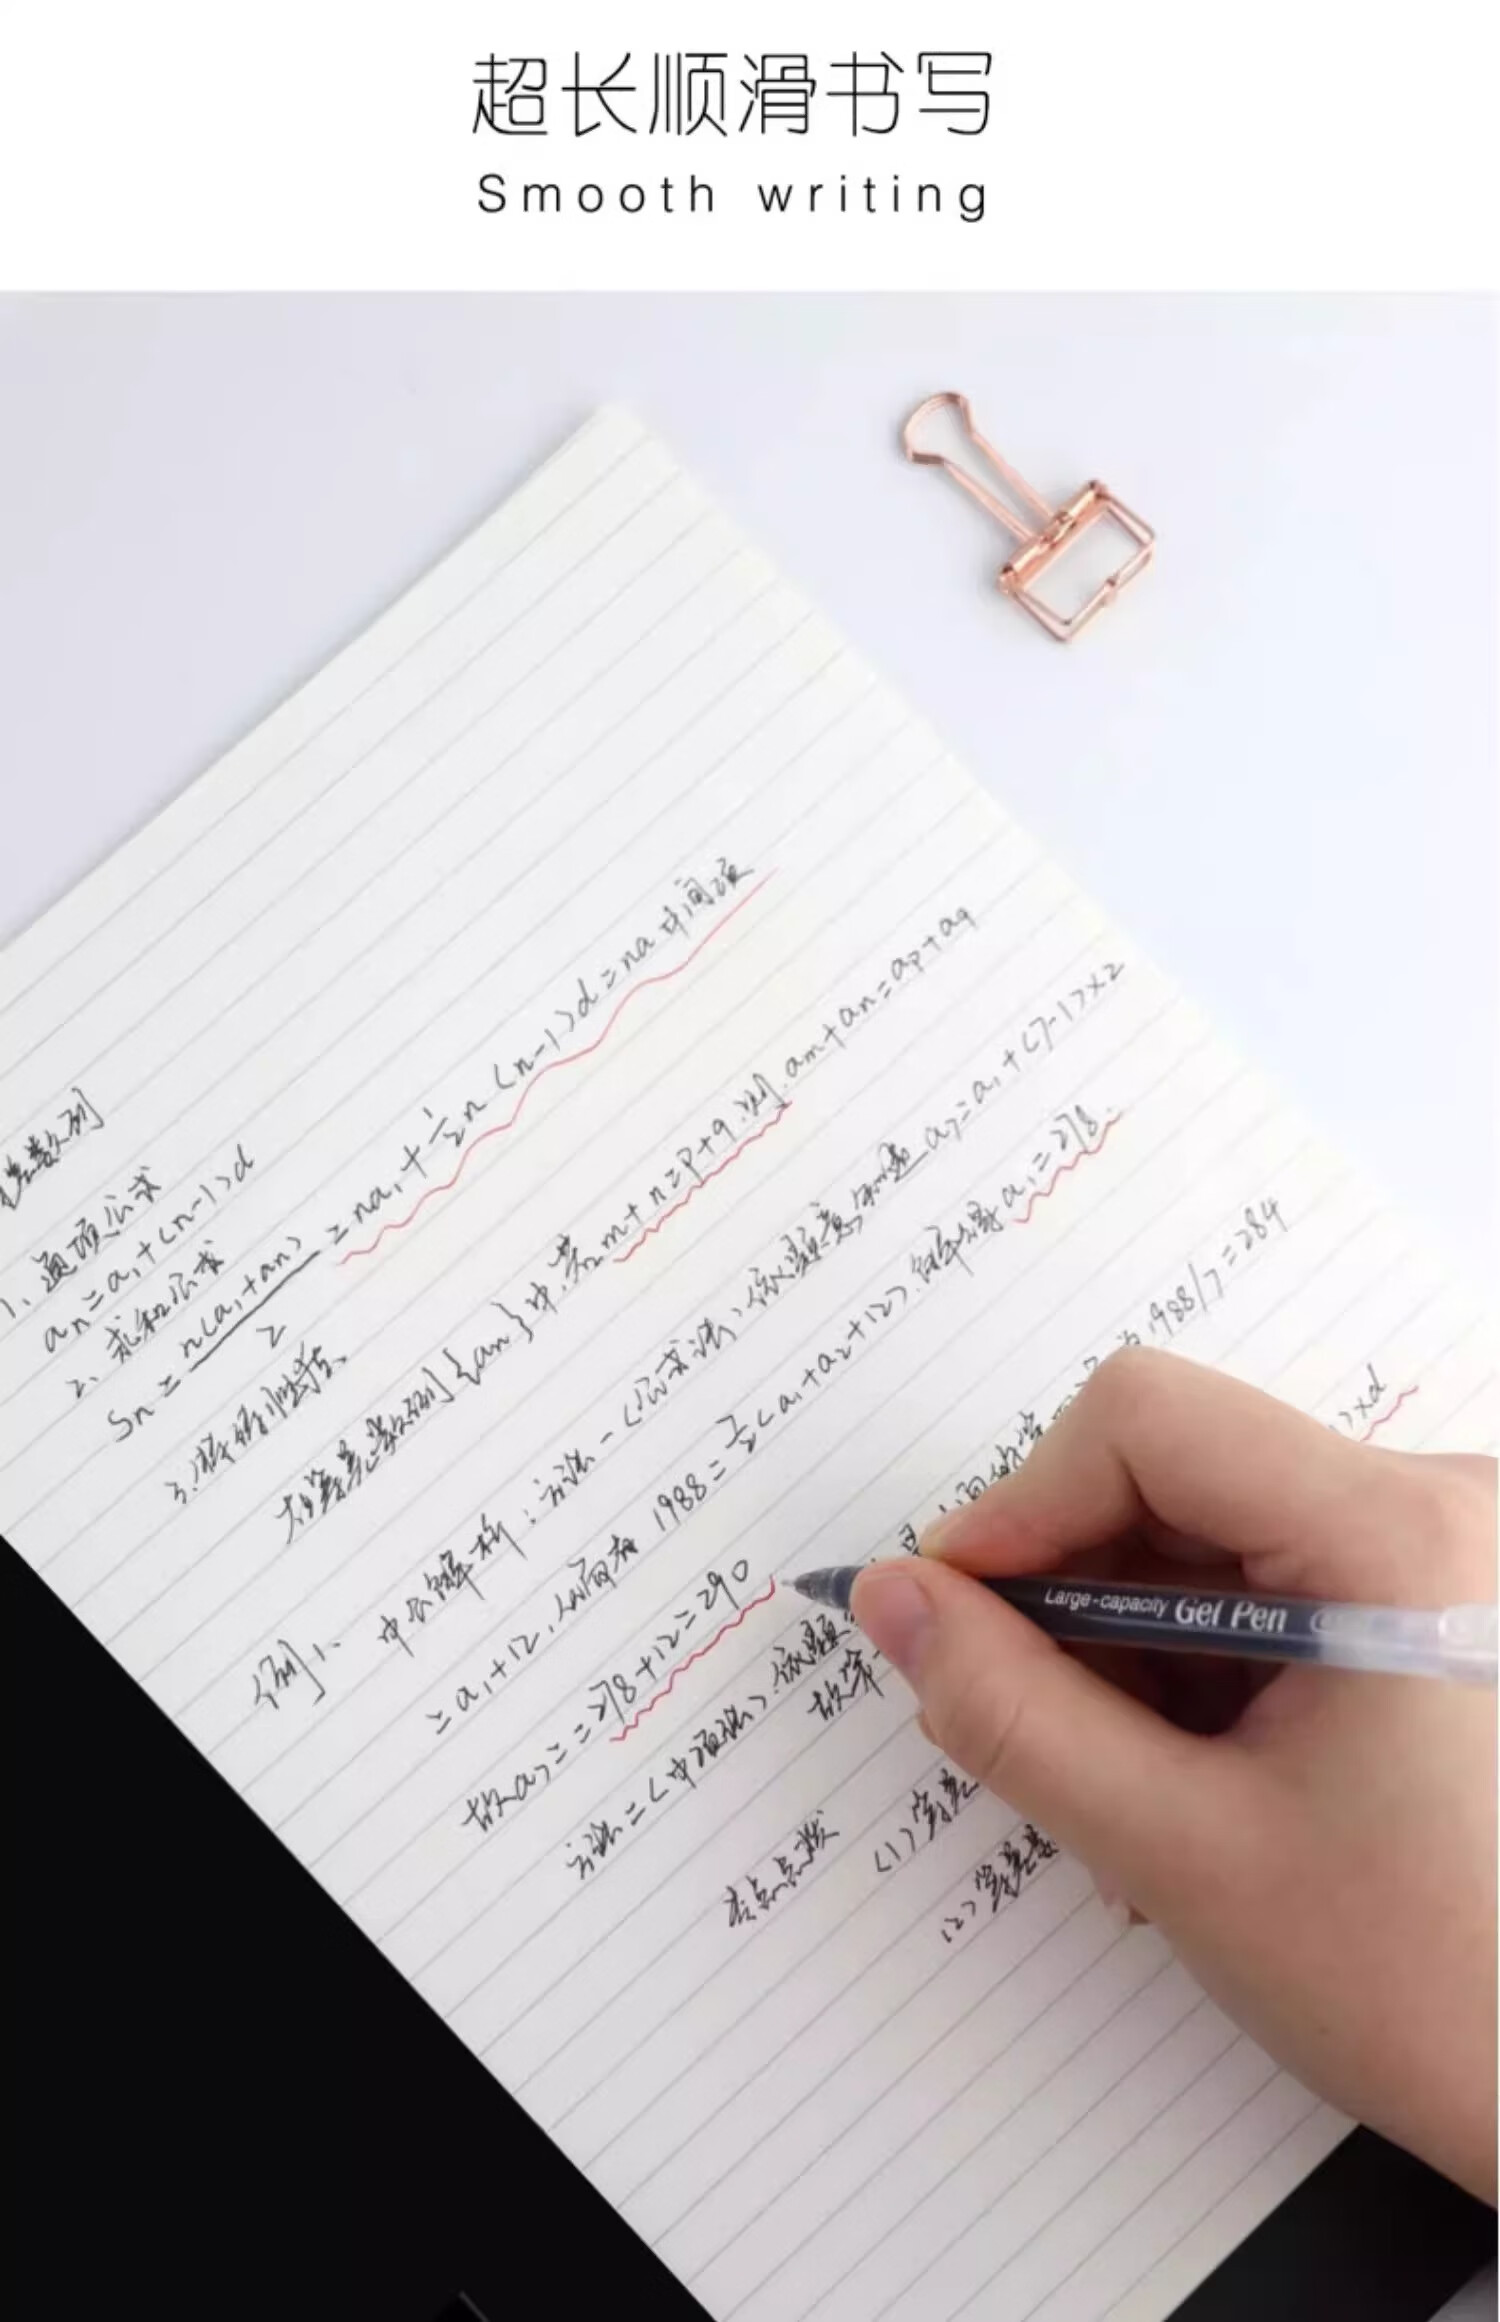 超长顺滑书写
Smooth writing
差数列
1、通项公式
an=a₁+(n-1)d
2、求和公式
Sn=n(a₁+an)/2=na₁+½n(n-1)d=na中间项
3、特别性质
在等差数列{an}中,若m+n=p+q,则,am+an=ap+aq
例1、中公解析:方法一(公式法),依题意知道a7=a₁+(7-1)×2
=a₁+12,从而有1988=7/2(a₁+a₂+12).解得a₁=278.
故a7==278+12=290
方法二(中项法).依题
1988/7=284
故第
)×d
考点点拨
(1)等差
(2)等差数
Large-capacity Gel Pen